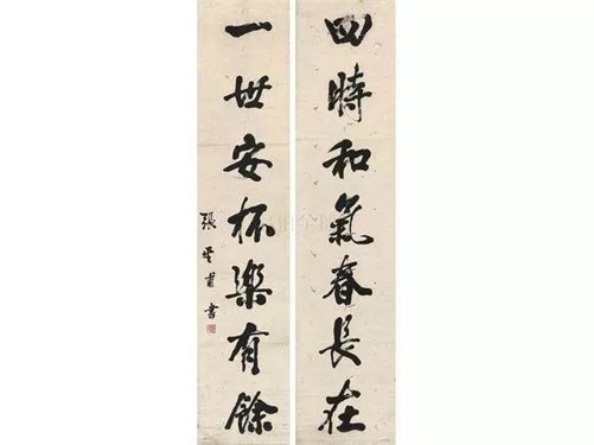 四時和氣春長在
一世安杯樂有餘
張 甫書